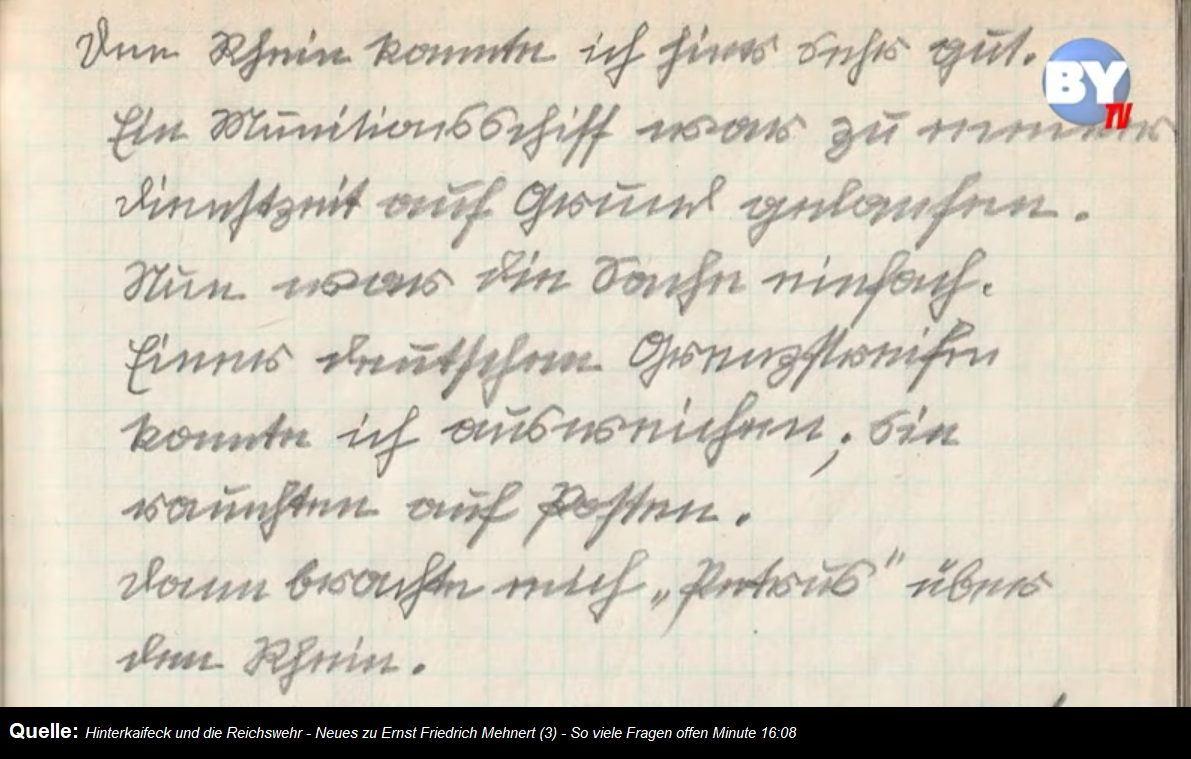 Den Rhein kannte ich hier sehr gut.
BY
TV
Ein Munitionsschiff war zu meiner
Dienstzeit auf Grund gelaufen.
Nun war die Sache einfach.
Einer deutschen Grenzstreifen
konnte ich ausweichen, sie
rauchten auf Posten.
Dann brachte mich „Petrus" über
den Rhein.
Quelle: Hinterkaifeck und die Reichswehr - Neues zu Ernst Friedrich Mehnert (3) - So viele Fragen offen Minute 16:08